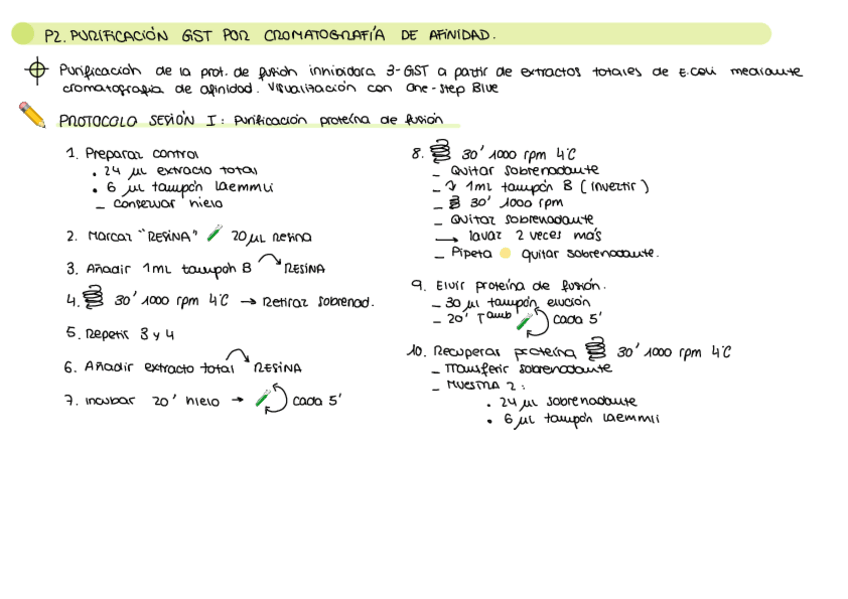 P2. PURIFICACIÓN GST POR CROMATOGRAFÍA DE AFINIDAD.
Purificación de la prot. de fusión inhibidora 3-GST a partir de extractos totales de E.coli mediante
cromatografía de afinidad. Visualización con One-Step Blue
PROTOCOLO SESIÓN I: Purificación proteína de fusión
1. Preparar control
• 24 µl extracto total
• 6 µl tampón Laemmli
- conservar hielo
2. Marcar "RESINA" 20µL resina
3. Añadir 1mL tampón B RESINA
4. 30' 1000 rpm 4°C → Retirar sobrenad.
5. Repetir 3 y 4
6. Añadir extracto total RESINA
7. incubar 20' hielo → cada 5'
8. 30' 1000 rpm 4°C
- Quitar sobrenadante
- 1mL tampón B (invertir)
- 30' 1000 rpm
- Quitar sobrenadante
→ lavar 2 veces más
- Pipeta quitar sobrenadante.
9. Eluir proteína de fusión.
- 30 µl tampón elución
- 20' Tamb cada 5'
10. Recuperar proteína 30' 1000 rpm 4°C
- Transferir sobrenadante
- Muestra 2:
• 24 µL sobrenadante
• 6 µL tampón Laemmli